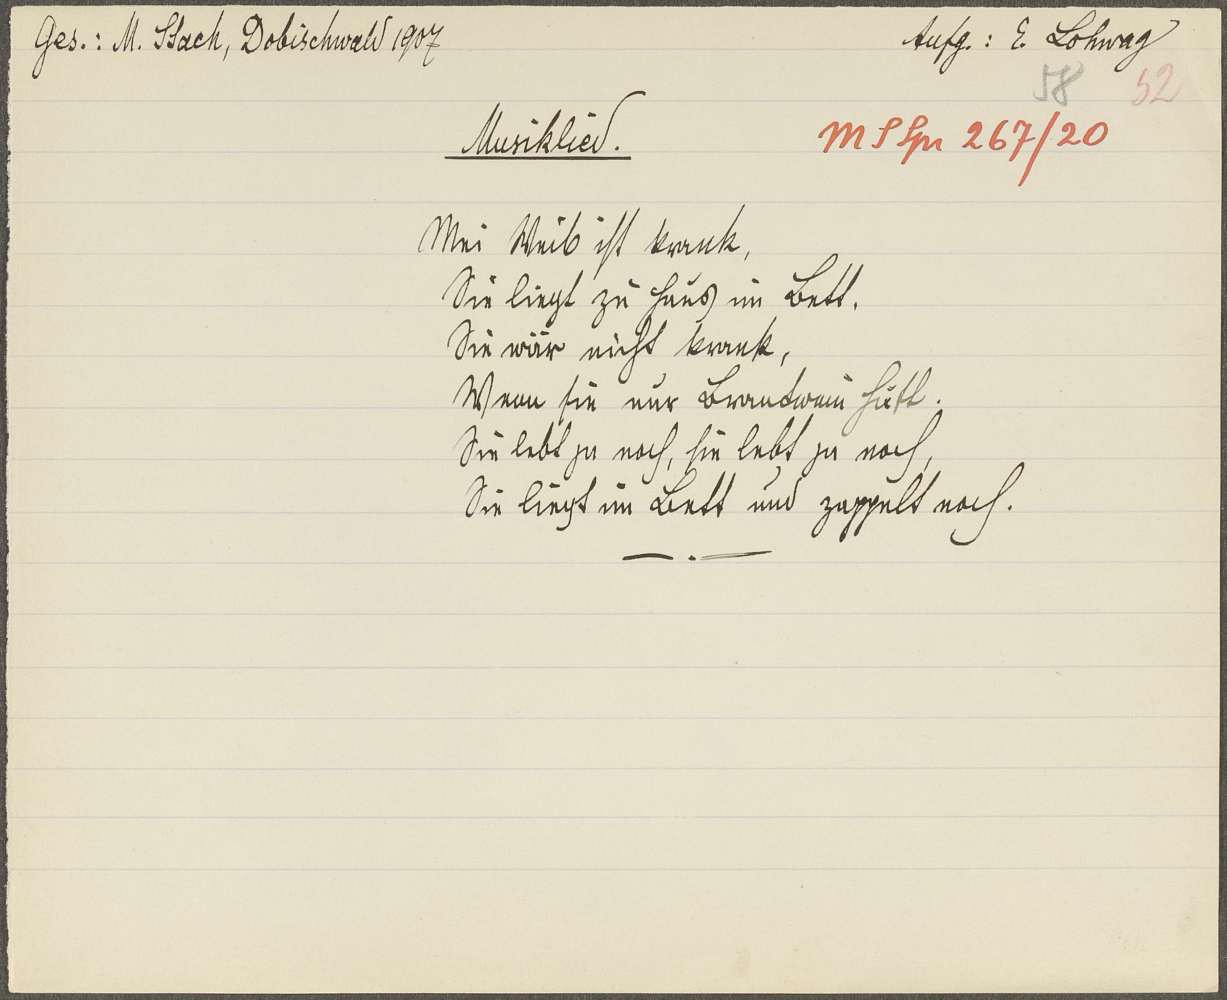 Ges.: M. Stach, Dobischwald 1907
Aufg.: E. Lohwag
58 52
Musiklied.
M S Spr 267/20
Mei Weib ist krank,
Sie liegt zu Haus im Bett.
Sie wär nicht krank,
Wenn sie nur Brandwein hätt.
Sie lebt ja noch, sie lebt ja noch,
Sie liegt im Bett und zappelt noch.